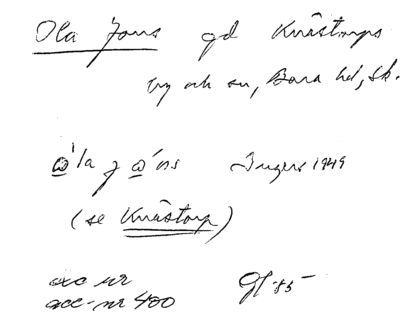 Ola Jons gd Knästorps
by och sn, Bara hd, Sk.
ώla j ώns Ingers 1949
(se Knästorp)
acc nr
acc-nr 400 Gl-85